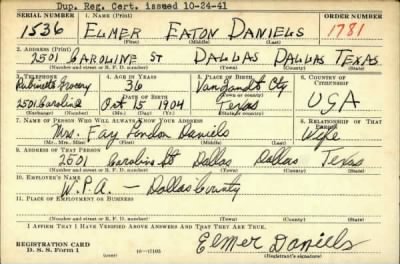 Dup. Reg. Cert. issued 10-24-41
SERIAL NUMBER 1. NAME (Print) ORDER NUMBER
1536 ELMER EATON DANIELS 1781
(First) (Middle) (Last)
2. ADDRESS (Print)
2501 CAROLINE ST DALLAS DALLAS TEXAS
(Number and street or R. F. D. number) (Town) (County) (State)
3. TELEPHONE 4. AGE IN YEARS 5. PLACE OF BIRTH 6. COUNTRY OF CITIZENSHIP
Grocery 36 Van Zandt Cty
DATE OF BIRTH
2501 Caroline Oct 15 1904 Texas USA
7. NAME OF PERSON WHO WILL ALWAYS KNOW YOUR ADDRESS 8. RELATIONSHIP OF THAT PERSON
Mrs. Fay Daniels Wife
(Mr., Mrs., Miss) (First) (Middle) (Last)
9. ADDRESS OF THAT PERSON
2501 Caroline St Dallas Dallas Texas
(Number and street or R. F. D. number) (Town) (County) (State)
10. EMPLOYER'S NAME
W.P.A. — Dallas County
11. PLACE OF EMPLOYMENT OR BUSINESS
(Number and street or R. F. D. number) (Town) (County) (State)
I AFFIRM THAT I HAVE VERIFIED ABOVE ANSWERS AND THAT THEY ARE TRUE.
REGISTRATION CARD
D. S. S. Form 1 Elmer Daniels
(Registrant's signature)